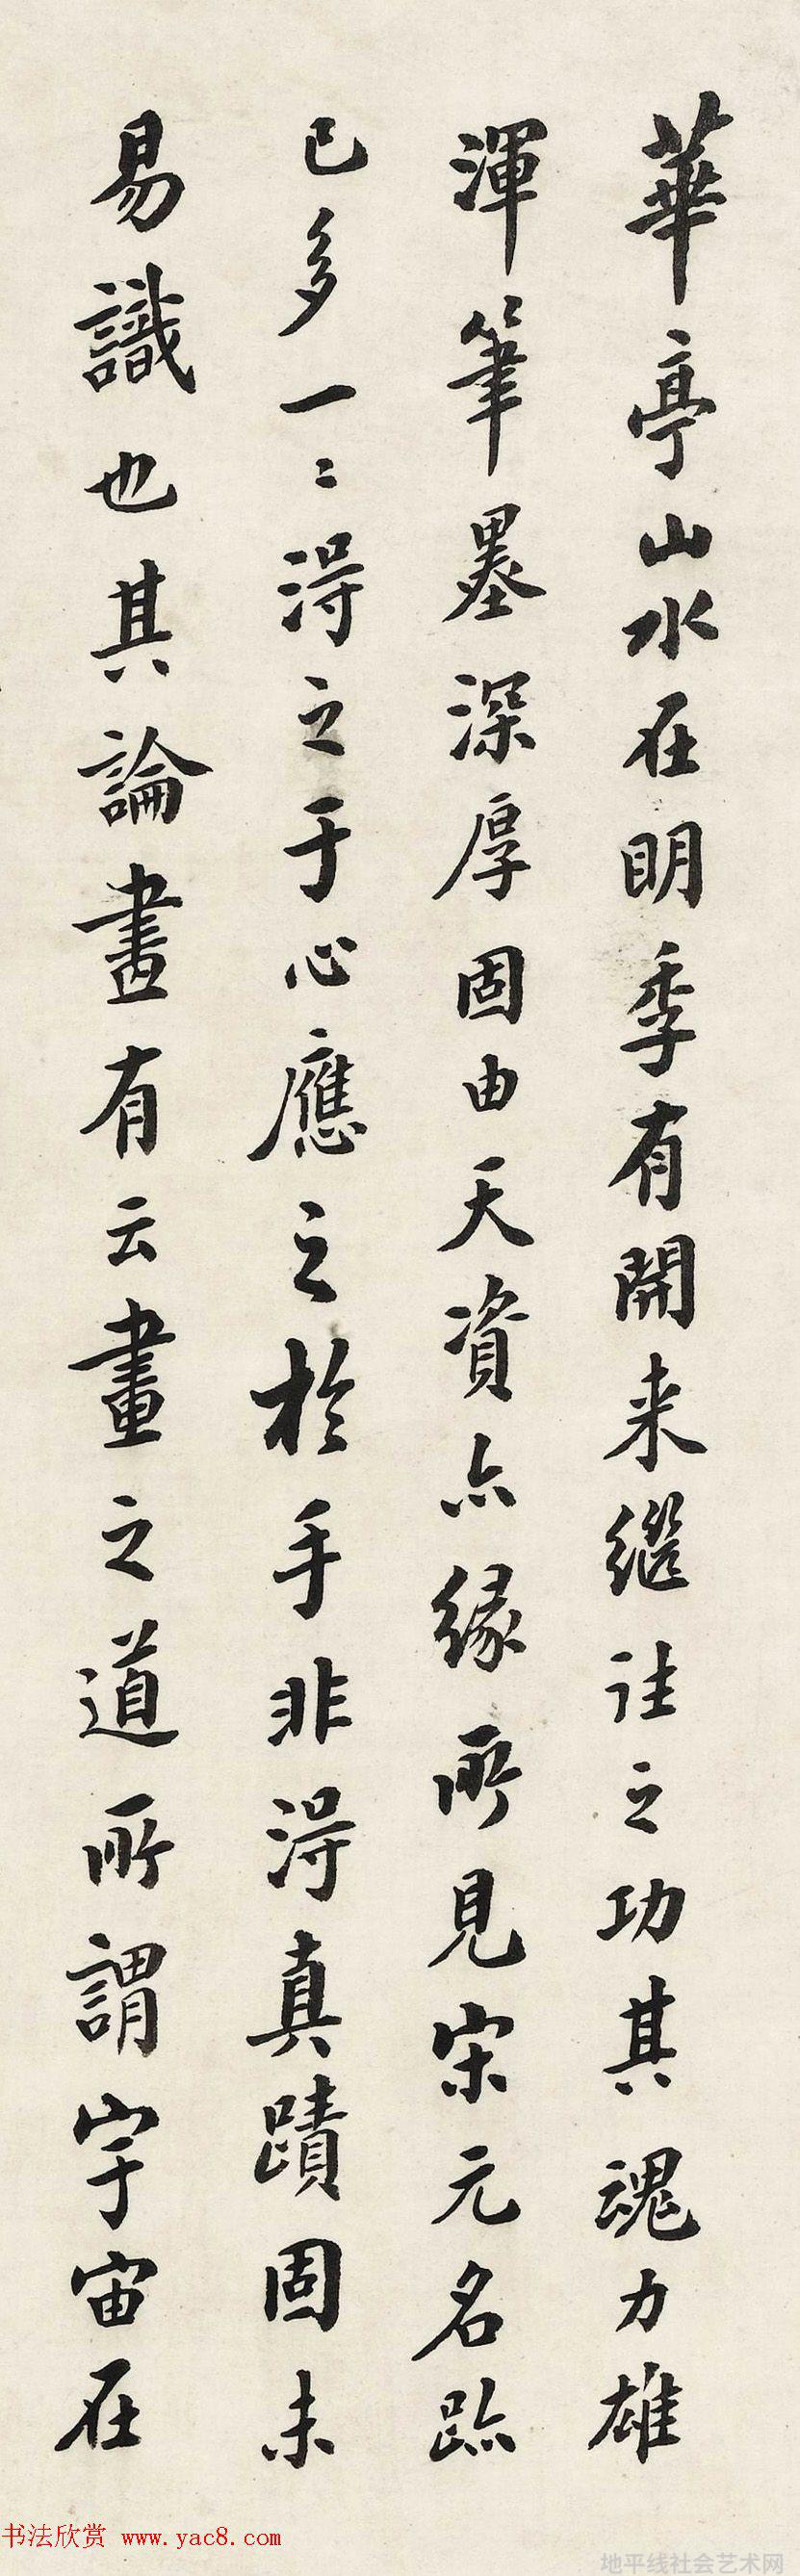 華亭山水在明季有開来繼往之功其魂力雄
渾筆墨深厚固由天資亦緣所見宋元名跡
已多一二得之于心應之於手非得真蹟固未
易識也其論畫有云畫之道所謂宇宙在
书法欣赏 www.yac8.com
地平线社会艺术网